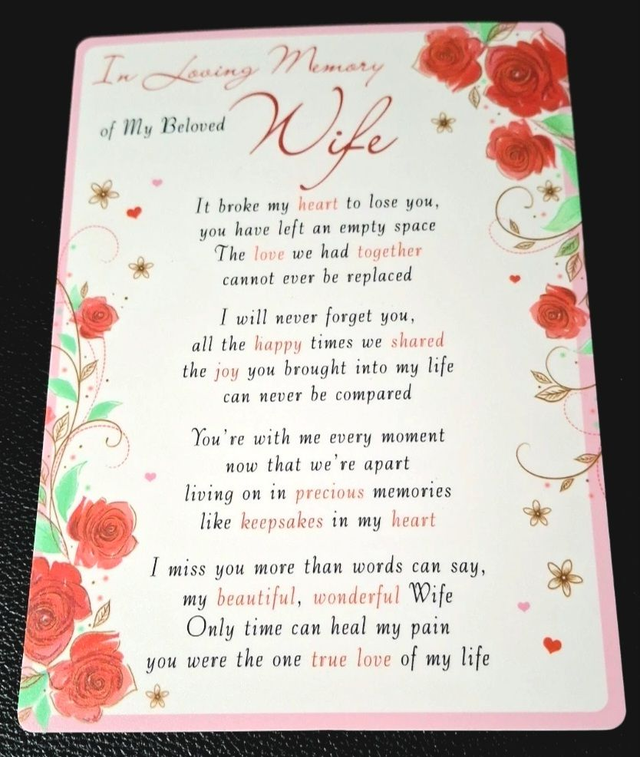 In Loving Memory
of My Beloved Wife
It broke my heart to lose you,
you have left an empty space
The love we had together
cannot ever be replaced
I will never forget you,
all the happy times we shared
the joy you brought into my life
can never be compared
You're with me every moment
now that we're apart
living on in precious memories
like keepsakes in my heart
I miss you more than words can say,
my beautiful, wonderful Wife
Only time can heal my pain
you were the one true love of my life